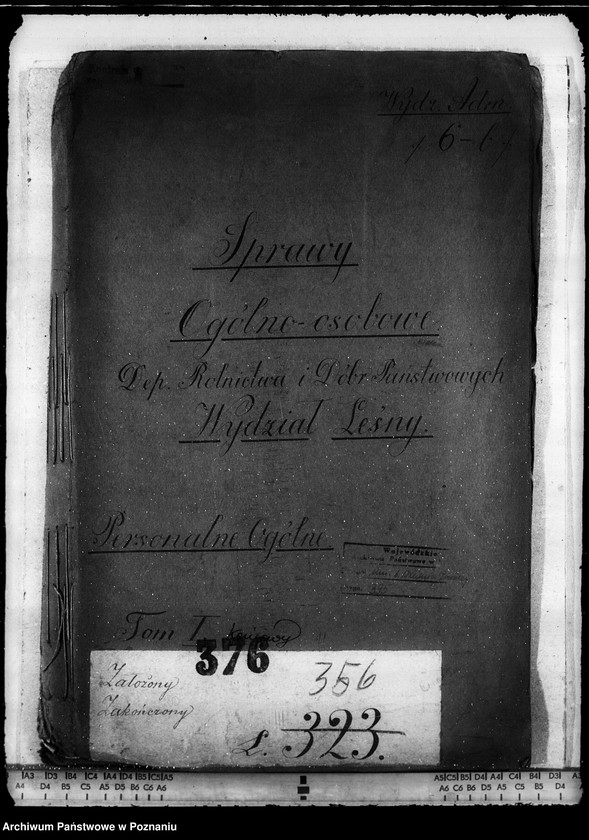 Wydz. Adm.
6-6
Sprawy
Ogólno-osobowe.
Dep. Rolnictwa i Dóbr Państwowych
Wydział Leśny.
Personalne Ogólne
Wojewódzkie
Archiwum Państwowe w
Tom I
376
Założony
356
Zakończony
L. 323.
A3 D3 B4 C4 A4 D4 B5 C5 A5
A4 D4 B5 C5 A5 D5 B6 C6 A6
A5 C5 B5 D4 A4 C4 B4 D3 A3
A6 C6 B6 D5 A5 C5 B5 D4
Archiwum Państwowe w Poznaniu